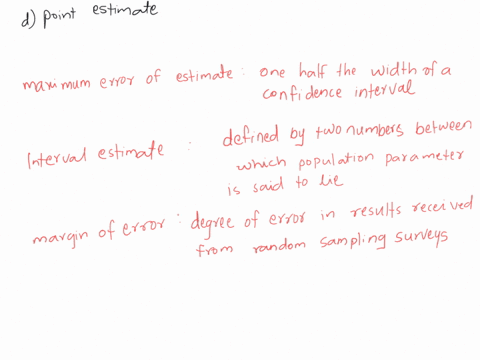 d) point estimate
maximum error of estimate : one half the width of a
confidence interval
Interval estimate : defined by two numbers, between
which population parameter
is said to lie
margin of error : degree of error in results received
from random sampling surveys